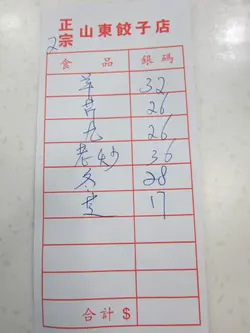 正宗 山東餃子店
2
食 品 銀 碼
羊 32
26
九 26
老炒 36
冬 28
17
合計 $